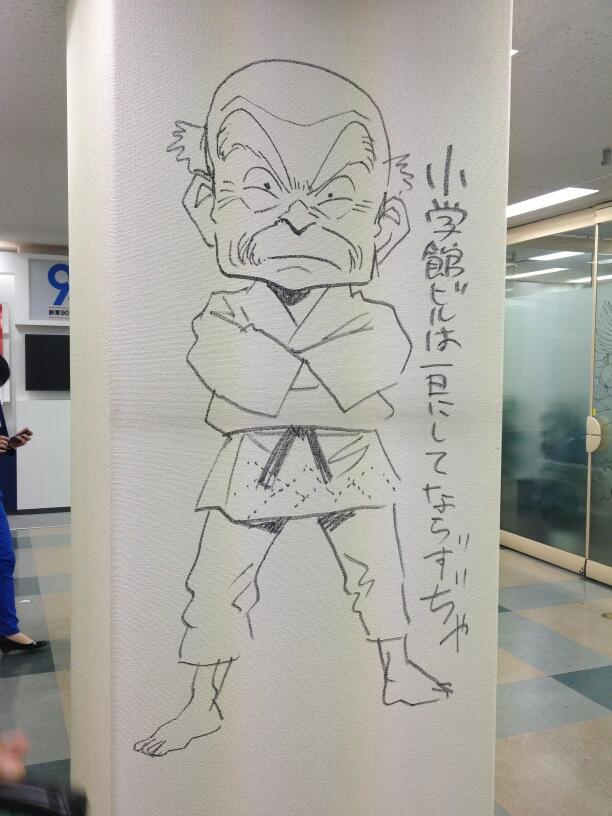 小学館ビルは一日にしてならずぢゃ
9
創業90